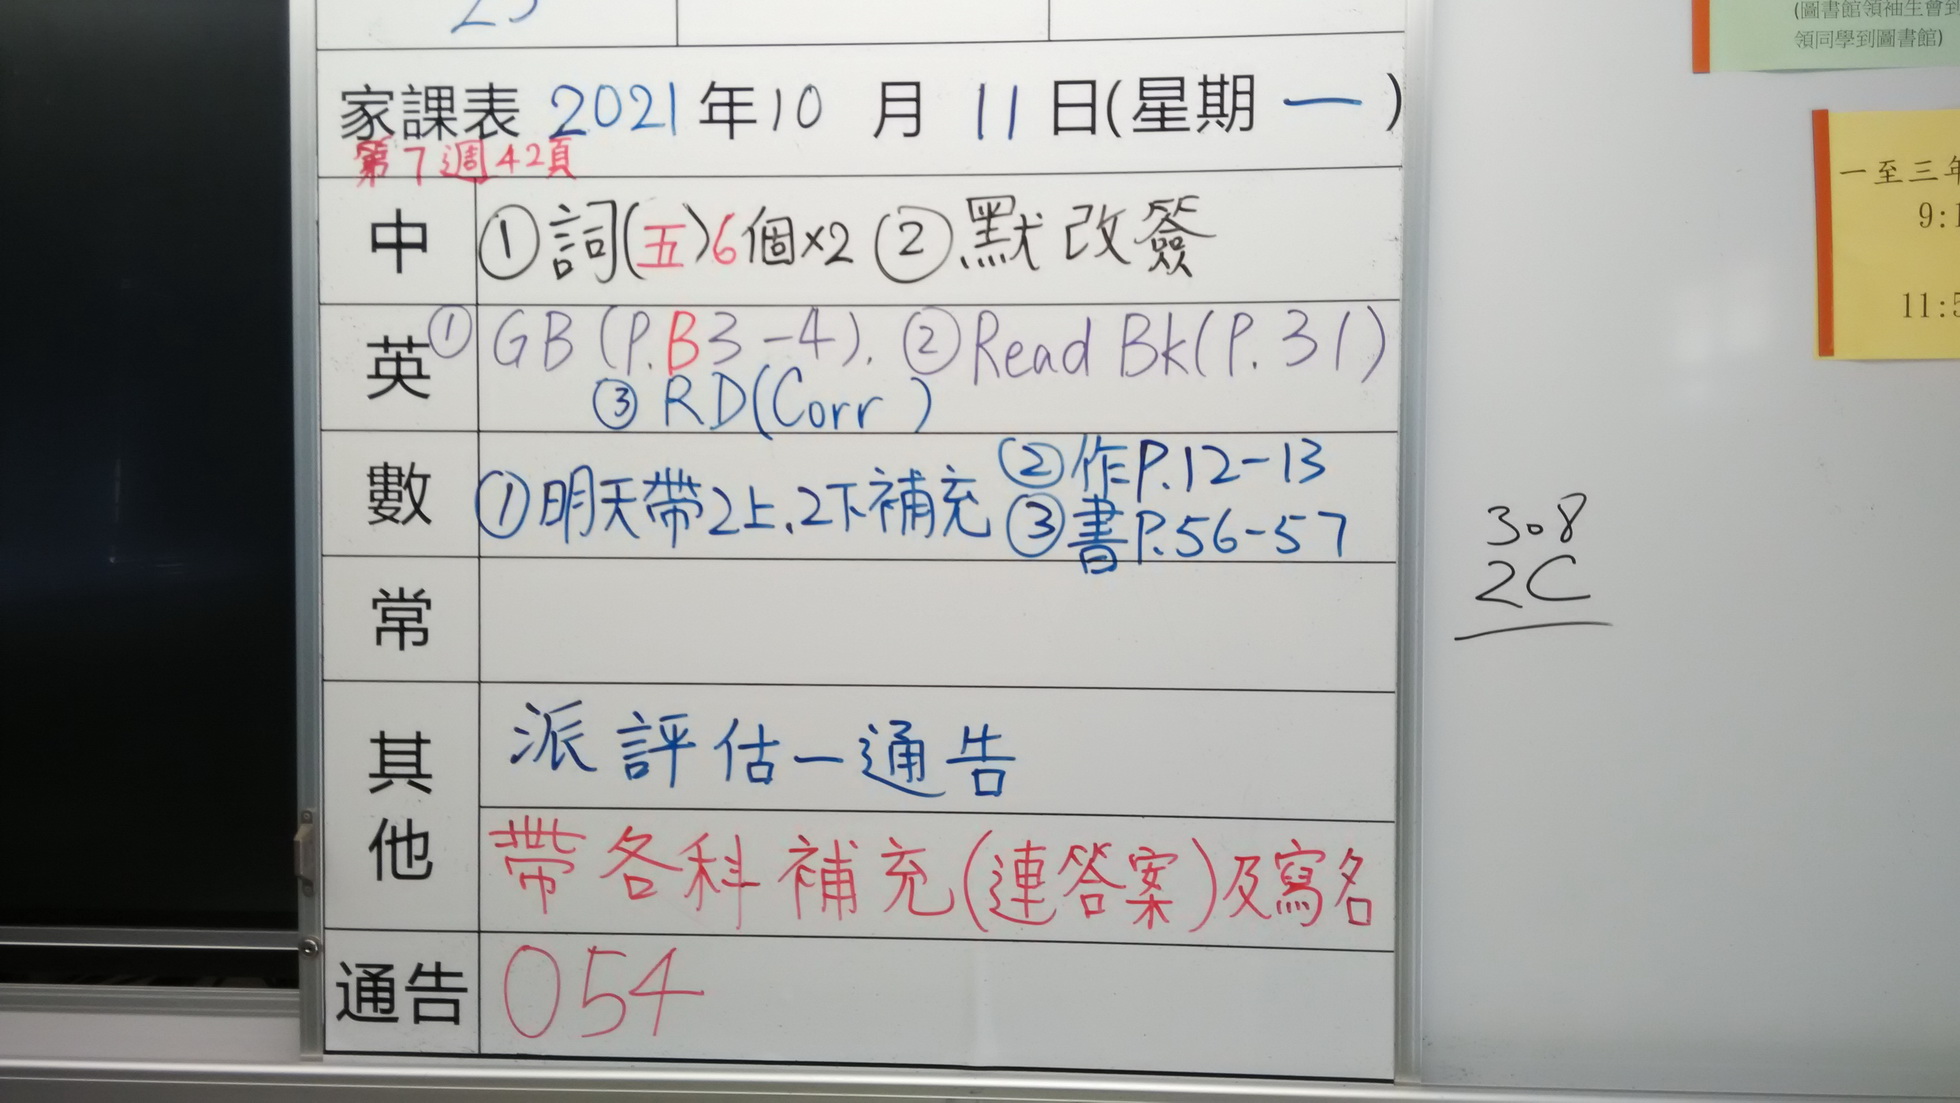 家課表 2021年10月11日(星期一)
第7週42頁
中 ①詞(五)6個×2 ②默改簽
英 ①GB(P.B3-4). ②Read Bk(P.31)
③RD(Corr)
數 ①明天帶2上,2下補充 ②作P.12-13
③書P.56-57
常
其他 派評估一通告
帶各科補充(連答案)及寫名
通告 054
308
2C
(圖書館領袖生會到
領同學到圖書館)
一至三年
9:1
11:5